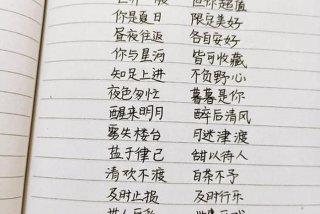 但你超值
你是夏日 限定美好
昼夜往返 各自安好
你与星河 皆可收藏
知足上进 不负野心
夜色匆忙 暮暮是你
醒来明月 醉后清风
雾失楼台 月迷津渡
盐于律己 甜以待人
清欢不渡 白茶不予
及时止损 及时行乐